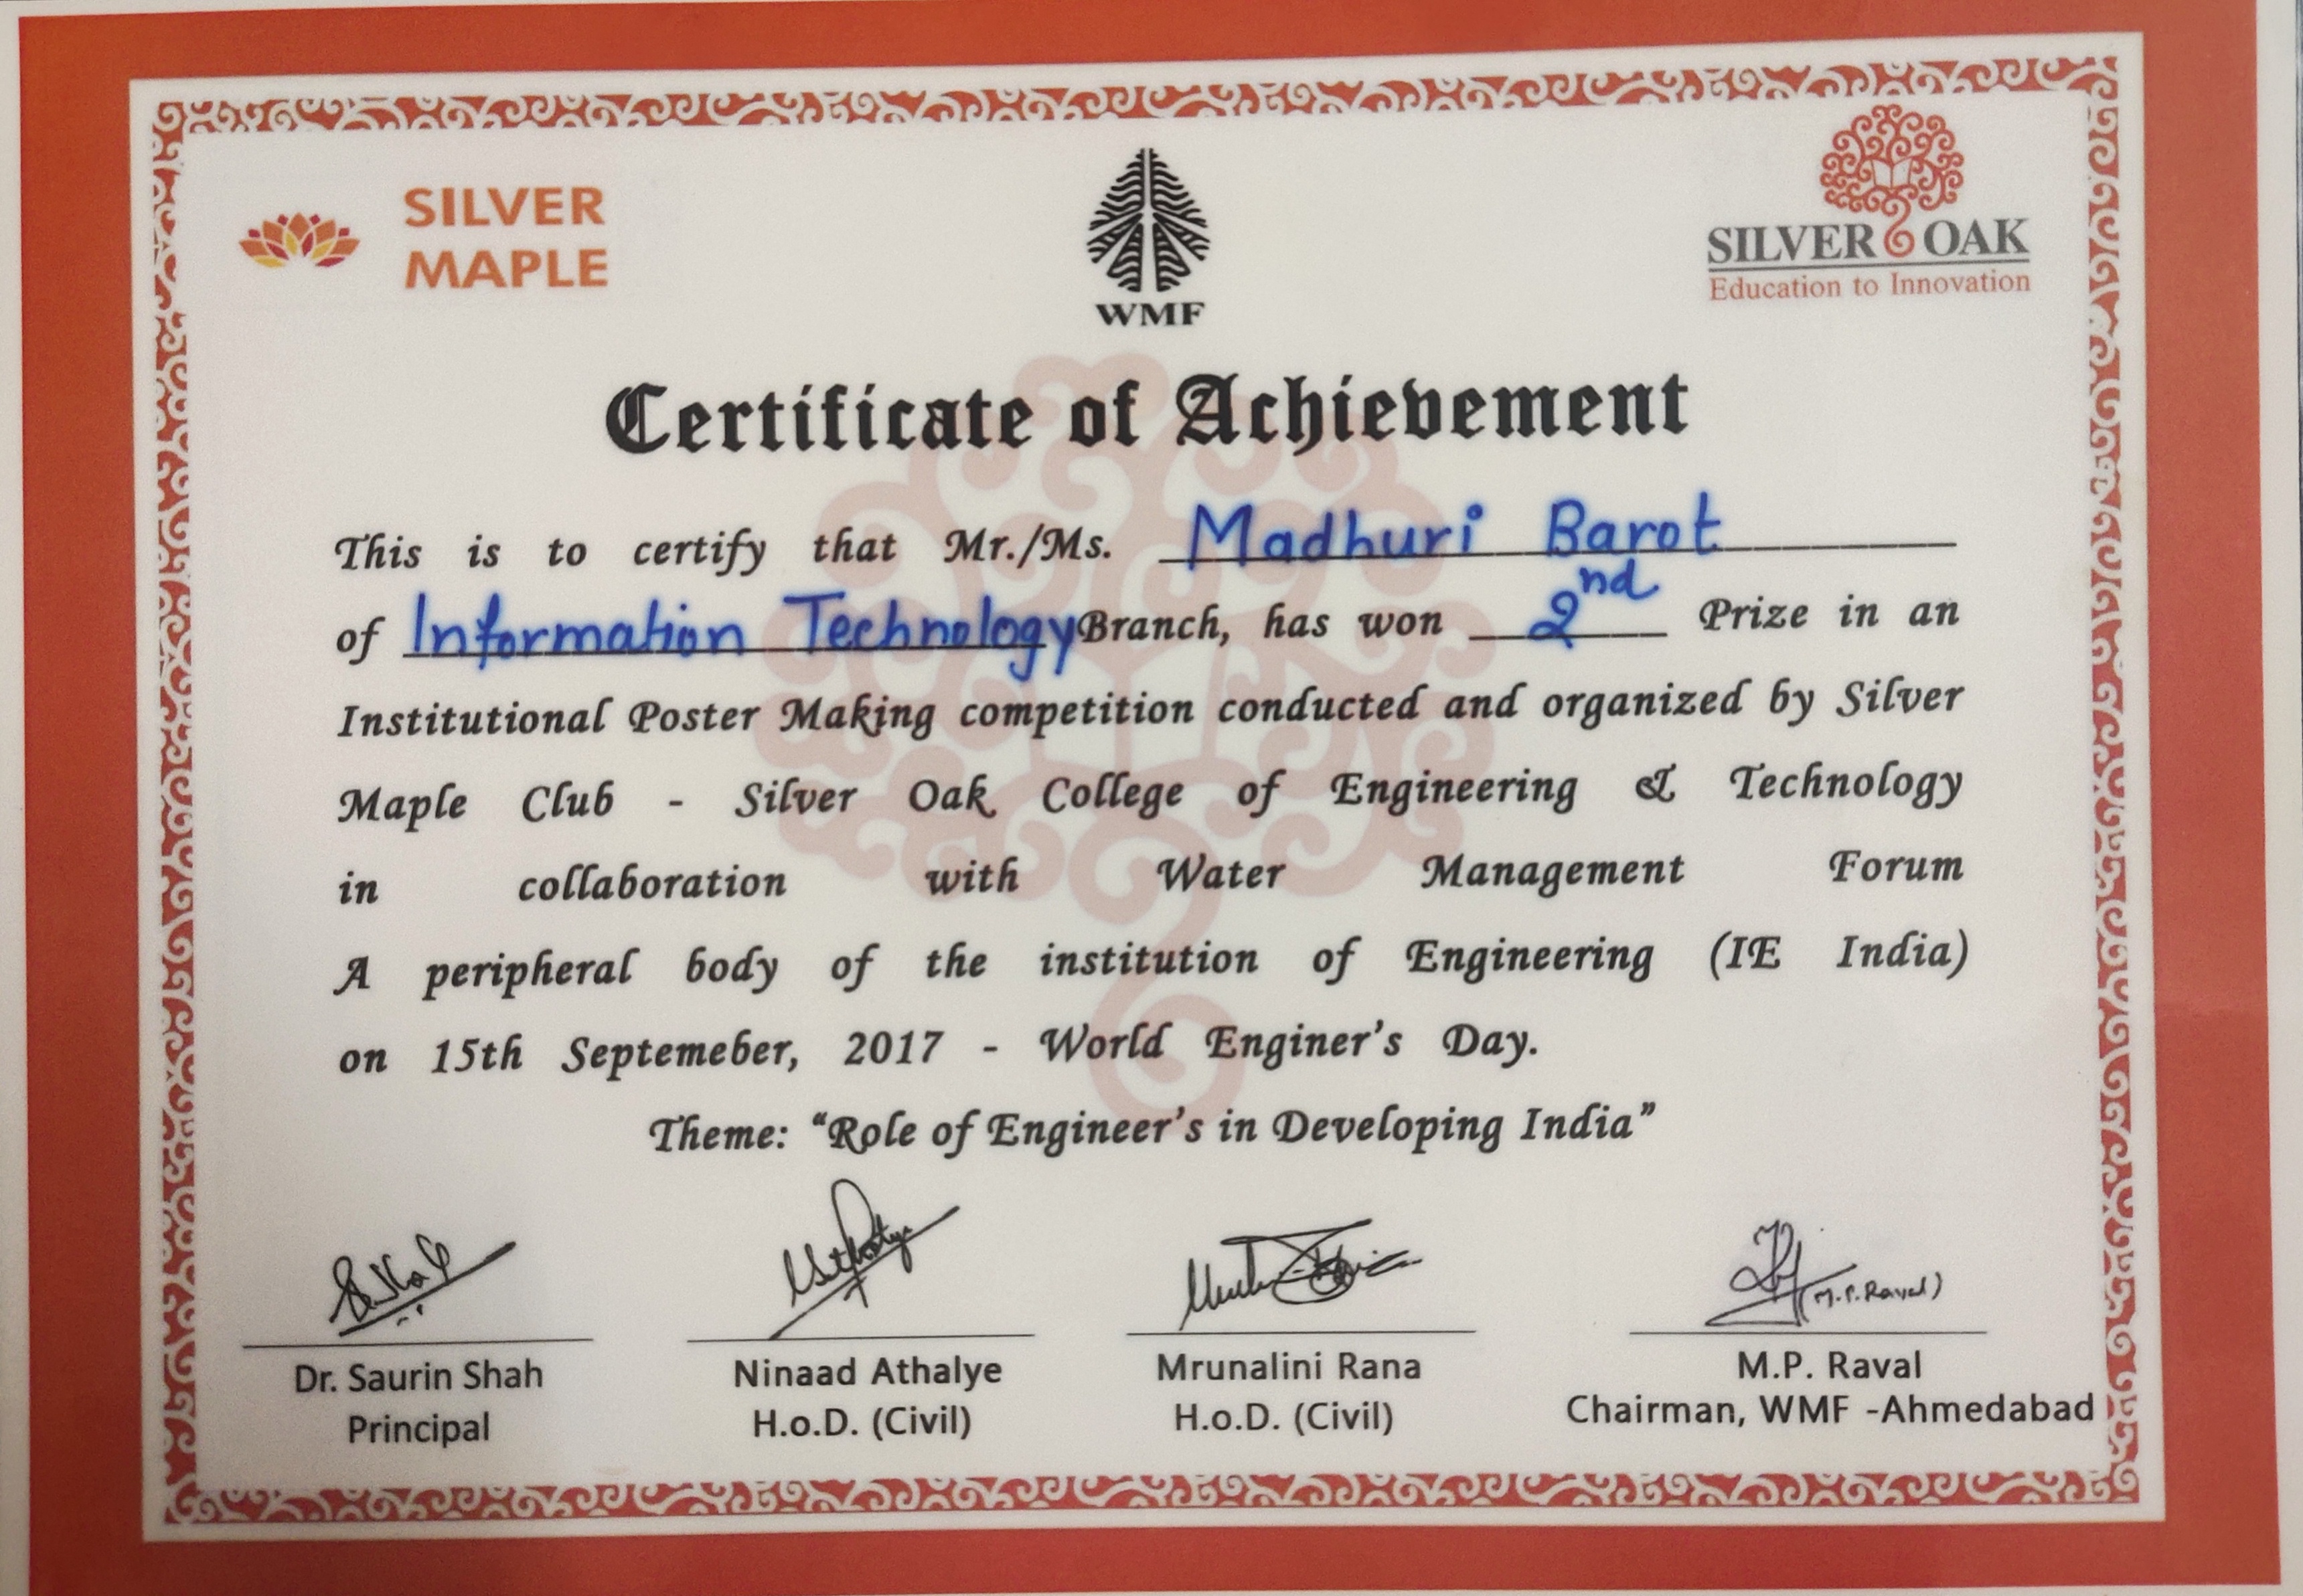 SILVER
MAPLE
WMF
SILVER OAK
Education to Innovation
Certificate of Achievement
This is to certify that Mr./Ms. Madhuri Barot
of Information Technology Branch, has won 2nd Prize in an
Institutional Poster Making competition conducted and organized by Silver
Maple Club - Silver Oak College of Engineering & Technology
in collaboration with Water Management Forum
A peripheral body of the institution of Engineering (IE India)
on 15th Septemeber, 2017 - World Enginer's Day.
Theme: “Role of Engineer's in Developing India”
(M.P.Raval)
Dr. Saurin Shah
Principal
Ninaad Athalye
H.o.D. (Civil)
Mrunalini Rana
H.o.D. (Civil)
M.P. Raval
Chairman, WMF -Ahmedabad